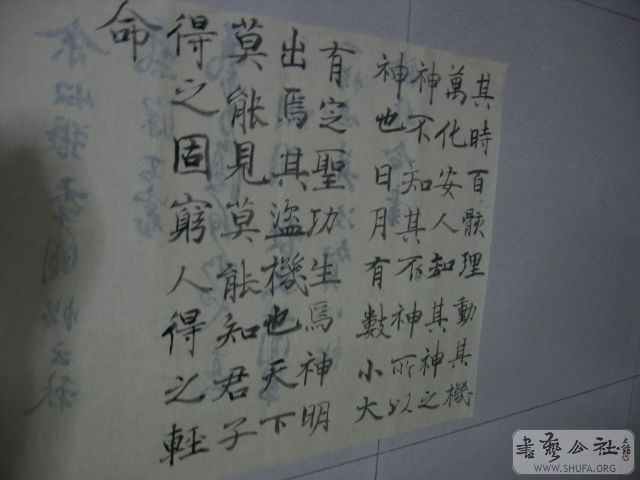 其時百骸理動其機
萬化安人知其神之
神不知其不神所以
神也日月有數小大
有定聖功生焉神明
出焉其盜機也天下
莫能見莫能知君子
得之固窮人得之輕
命
書藝公社
WWW.SHUFA.ORG